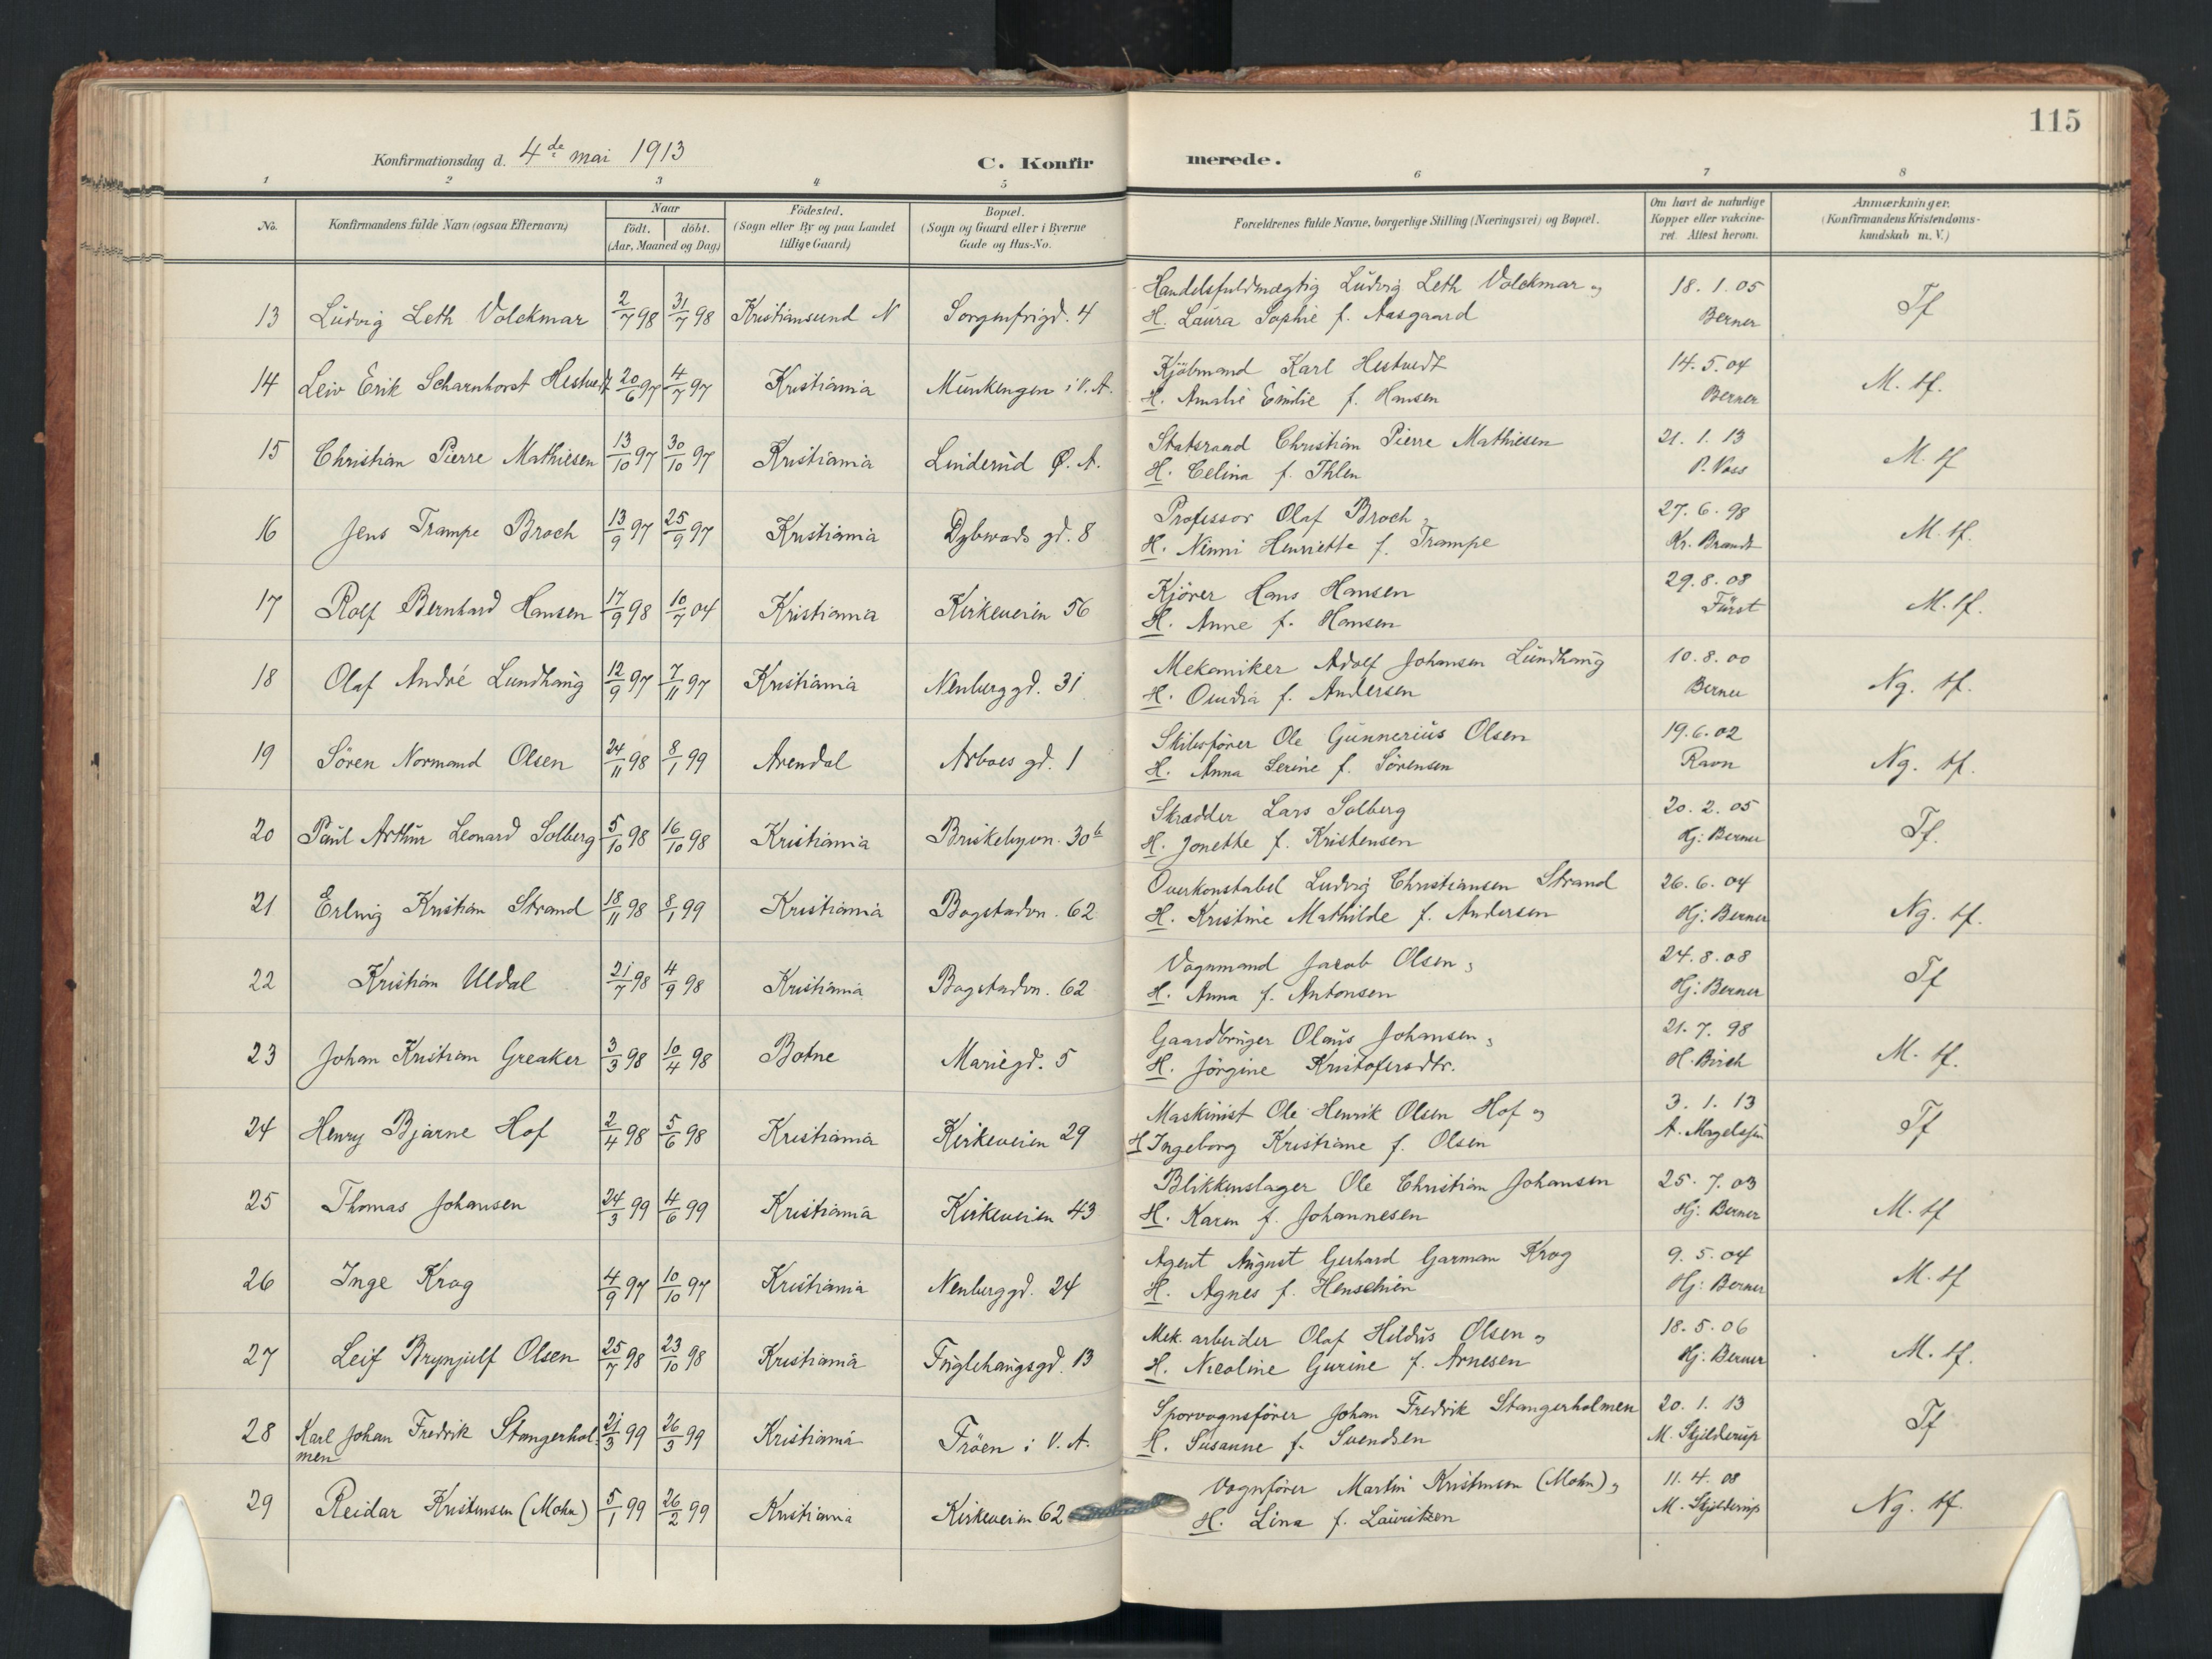 115
Konfirmationsdag d. 4de mai 1913
C. Konfirmerede.
1 2 3 4 5 6 7 8
No. Konfirmandens fulde Navn (ogsaa Efternavn) Naar født. døbt. (Aar, Maaned og Dag) Fødested. (Sogn eller By og paa Landet tillige Gaard) Bopæl. (Sogn og Gaard eller i Byerne Gade og Hus-No. Forældrenes fulde Navne, borgerlige Stilling (Næringsvei) og Bopæl. Om havt de naturlige Kopper eller vakcineret. Attest herom. Anmærkninger. (Konfirmandens Kristendomskundskab m. V.)
13 Ludvig Leth Volckmar 2/7 98 31/7 98 Kristiansund N Sorgenfrigd. 4 Handelsfuldmægtig Ludvig Leth Volckmar og 18. 1. 05 Tf
H. Laura Sophie f. Aasgaard Berner
14 Leiv Erik Scharnhorst Hestvedt 20/6 97 4/7 97 Kristiania Munkengen i V. A. Kjøbmand Karl Hestvedt 14. 5. 04 M. tf.
H. Amalie Emilie f. Hansen Berner
15 Christian Pierre Mathiesen 13/10 97 30/10 97 Kristiania Linderud Ø. A. Statsraad Christian Pierre Mathiesen 21. 1. 13 M. tf
H. Celina f. Ihlen P. Voss
16 Jens Trampe Broch 13/9 97 25/9 97 Kristiania Dybwads gd. 8 Professor Olaf Broch, 27. 6. 98 M. tf.
H. Ninni Henriette f. Trampe Kr. Brandt
17 Rolf Bernhard Hansen 17/9 98 10/7 04 Kristiania Kirkeveien 56 Kjører Hans Hansen 29. 8. 08 M. tf.
H. Anne f. Hansen Fürst
18 Olaf André Lundhaug 12/9 97 7/11 97 Kristiania Neuberggd. 31 Mekaniker Adolf Johansen Lundhaug 10. 8. 00 Ng. tf.
H. Oudia f. Andersen Berner
19 Sören Normand Olsen 24/11 98 8/1 99 Arendal Arboes gd. 1 Skibsfører Ole Gunnerius Olsen 19. 6. 02 Ng. tf.
H. Anna Serine f. Sörensen Ravn
20 Paul Arthur Leonard Solberg 5/10 98 16/10 98 Kristiania Briskebyvn. 30b Skrædder Lars Solberg 20. 2. 05 Tf.
H. Jonette f. Kristensen Hj: Berner
21 Erling Kristian Strand 18/11 98 8/1 99 Kristiania Bogstadvn. 62 Overkonstabel Ludvig Christiansen Strand 26. 6. 04 Ng. tf.
H. Kristine Mathilde f. Andersen Hj: Berner
22 Kristian Uldal 21/7 98 4/9 98 Kristiania Bogstadvn. 62 Vognmand Jacob Olsen, 24. 8. 08 Tf
H. Anna f. Antonsen Hj: Berner
23 Johan Kristian Greaker 3/3 98 10/4 98 Botne Mariegd. 5 Gaardbruger Olaus Johansen, 21. 7. 98 M. tf.
H. Jörgine Kristofersdtr. H. Birch
24 Henry Bjarne Hof 2/4 98 5/6 98 Kristiania Kirkeveien 29 Maskinist Ole Henrik Olsen Hof og 3. 1. 13 Tf
H Ingeborg Kristiane f. Olsen A. Magelssen
25 Thomas Johansen 24/3 99 4/6 99 Kristiania Kirkeveien 43 Blikkenslager Ole Christian Johansen 25. 7. 03 M. tf
H. Karen f. Johannesen Hj: Berner
26 Inge Krag 4/9 97 10/10 97 Kristiania Neuberggd. 24 Agent August Gerhard Garman Krag 9. 5. 04 M. tf
H. Agnes f. Henschien Hj: Berner
27 Leif Brynjulf Olsen 25/7 98 23/10 98 Kristiania Fuglehaugsgd. 13 Mek. arbeider Olaf Hildus Olsen og 18. 5. 06 M. tf.
H. Nicoline Gurine f. Arnesen Hj: Berner
28 Karl Johan Fredrik Stangerhol- 21/3 99 26/3 99 Kristiania Frøen i V. A. Sporvognsfører Johan Fredrik Stangerholmen 20. 1. 13 Tf
men H. Susanne f. Svendsen M. Skjelderup
29 Reidar Kristensen (Mohn) 5/1 99 26/2 99 Kristiania Kirkeveien 62 Vognfører Martin Kristensen (Mohn), 11. 4. 08 Ng. tf.
H. Lina f. Lauritzen M. Skjelderup